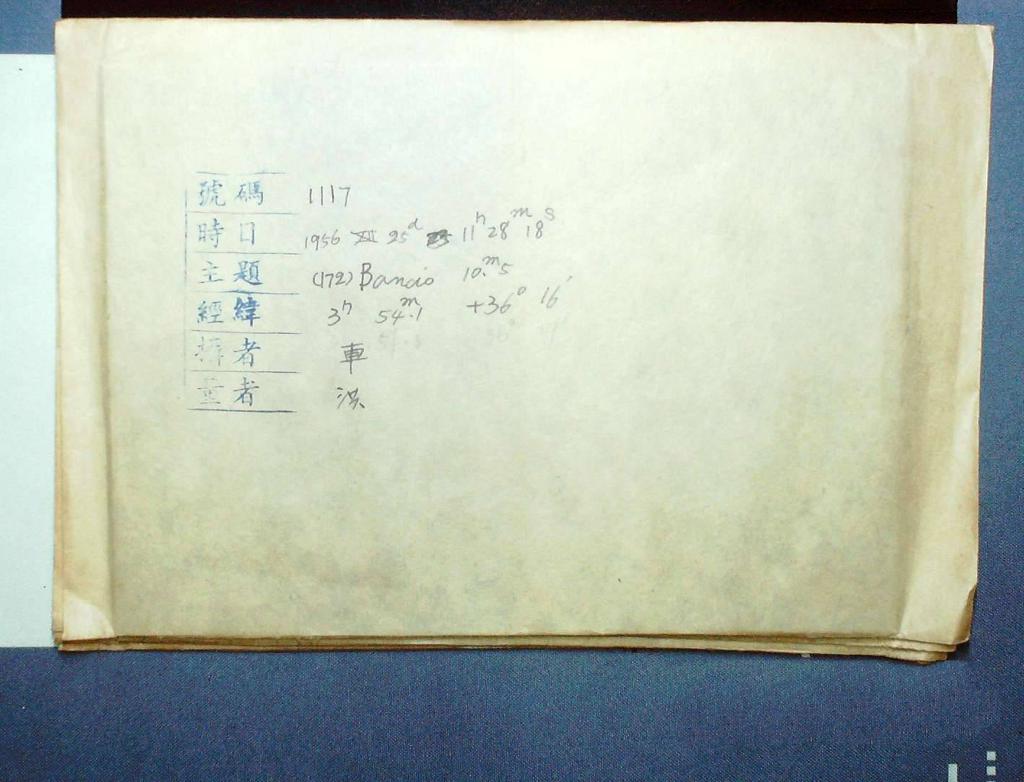 號碼 1117
時日 1956 XII 25ᵈ 11ʰ 28ᵐ 18ˢ
主題 (172) Bancio 10.ᵐ5
經緯 3ʰ 54.ᵐ1 +36° 16′
攝者 車
量者 洪